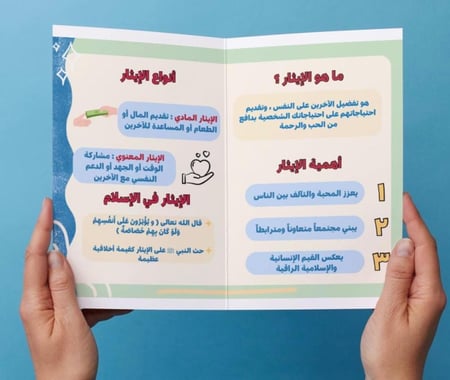 ما هو الإيثار ؟
هو تفضيل الآخرين على النفس ، وتقديم
احتياجاتهم على احتياجاتك الشخصية بدافع
من الحب والرحمة
أهمية الإيثار
1
يعزز المحبة والتآلف بين الناس
2
يبني مجتمعاً متعاوناً ومترابطاً
3
يعكس القيم الإنسانية
والإسلامية الراقية
أنواع الإيثار
الإيثار المادي : تقديم المال أو
الطعام أو المساعدة للآخرين
الإيثار المعنوي : مشاركة
الوقت أو الجهد أو الدعم
النفسي مع الآخرين
الإيثار في الإسلام
قال الله تعالى ( و يُؤْثِرُونَ عَلَى أَنفُسِهِمْ
وَلَوْ كَانَ بِهِمْ خَصَاصَةٌ )
حث النبي ﷺ على الإيثار كقيمة أخلاقية
عظيمة